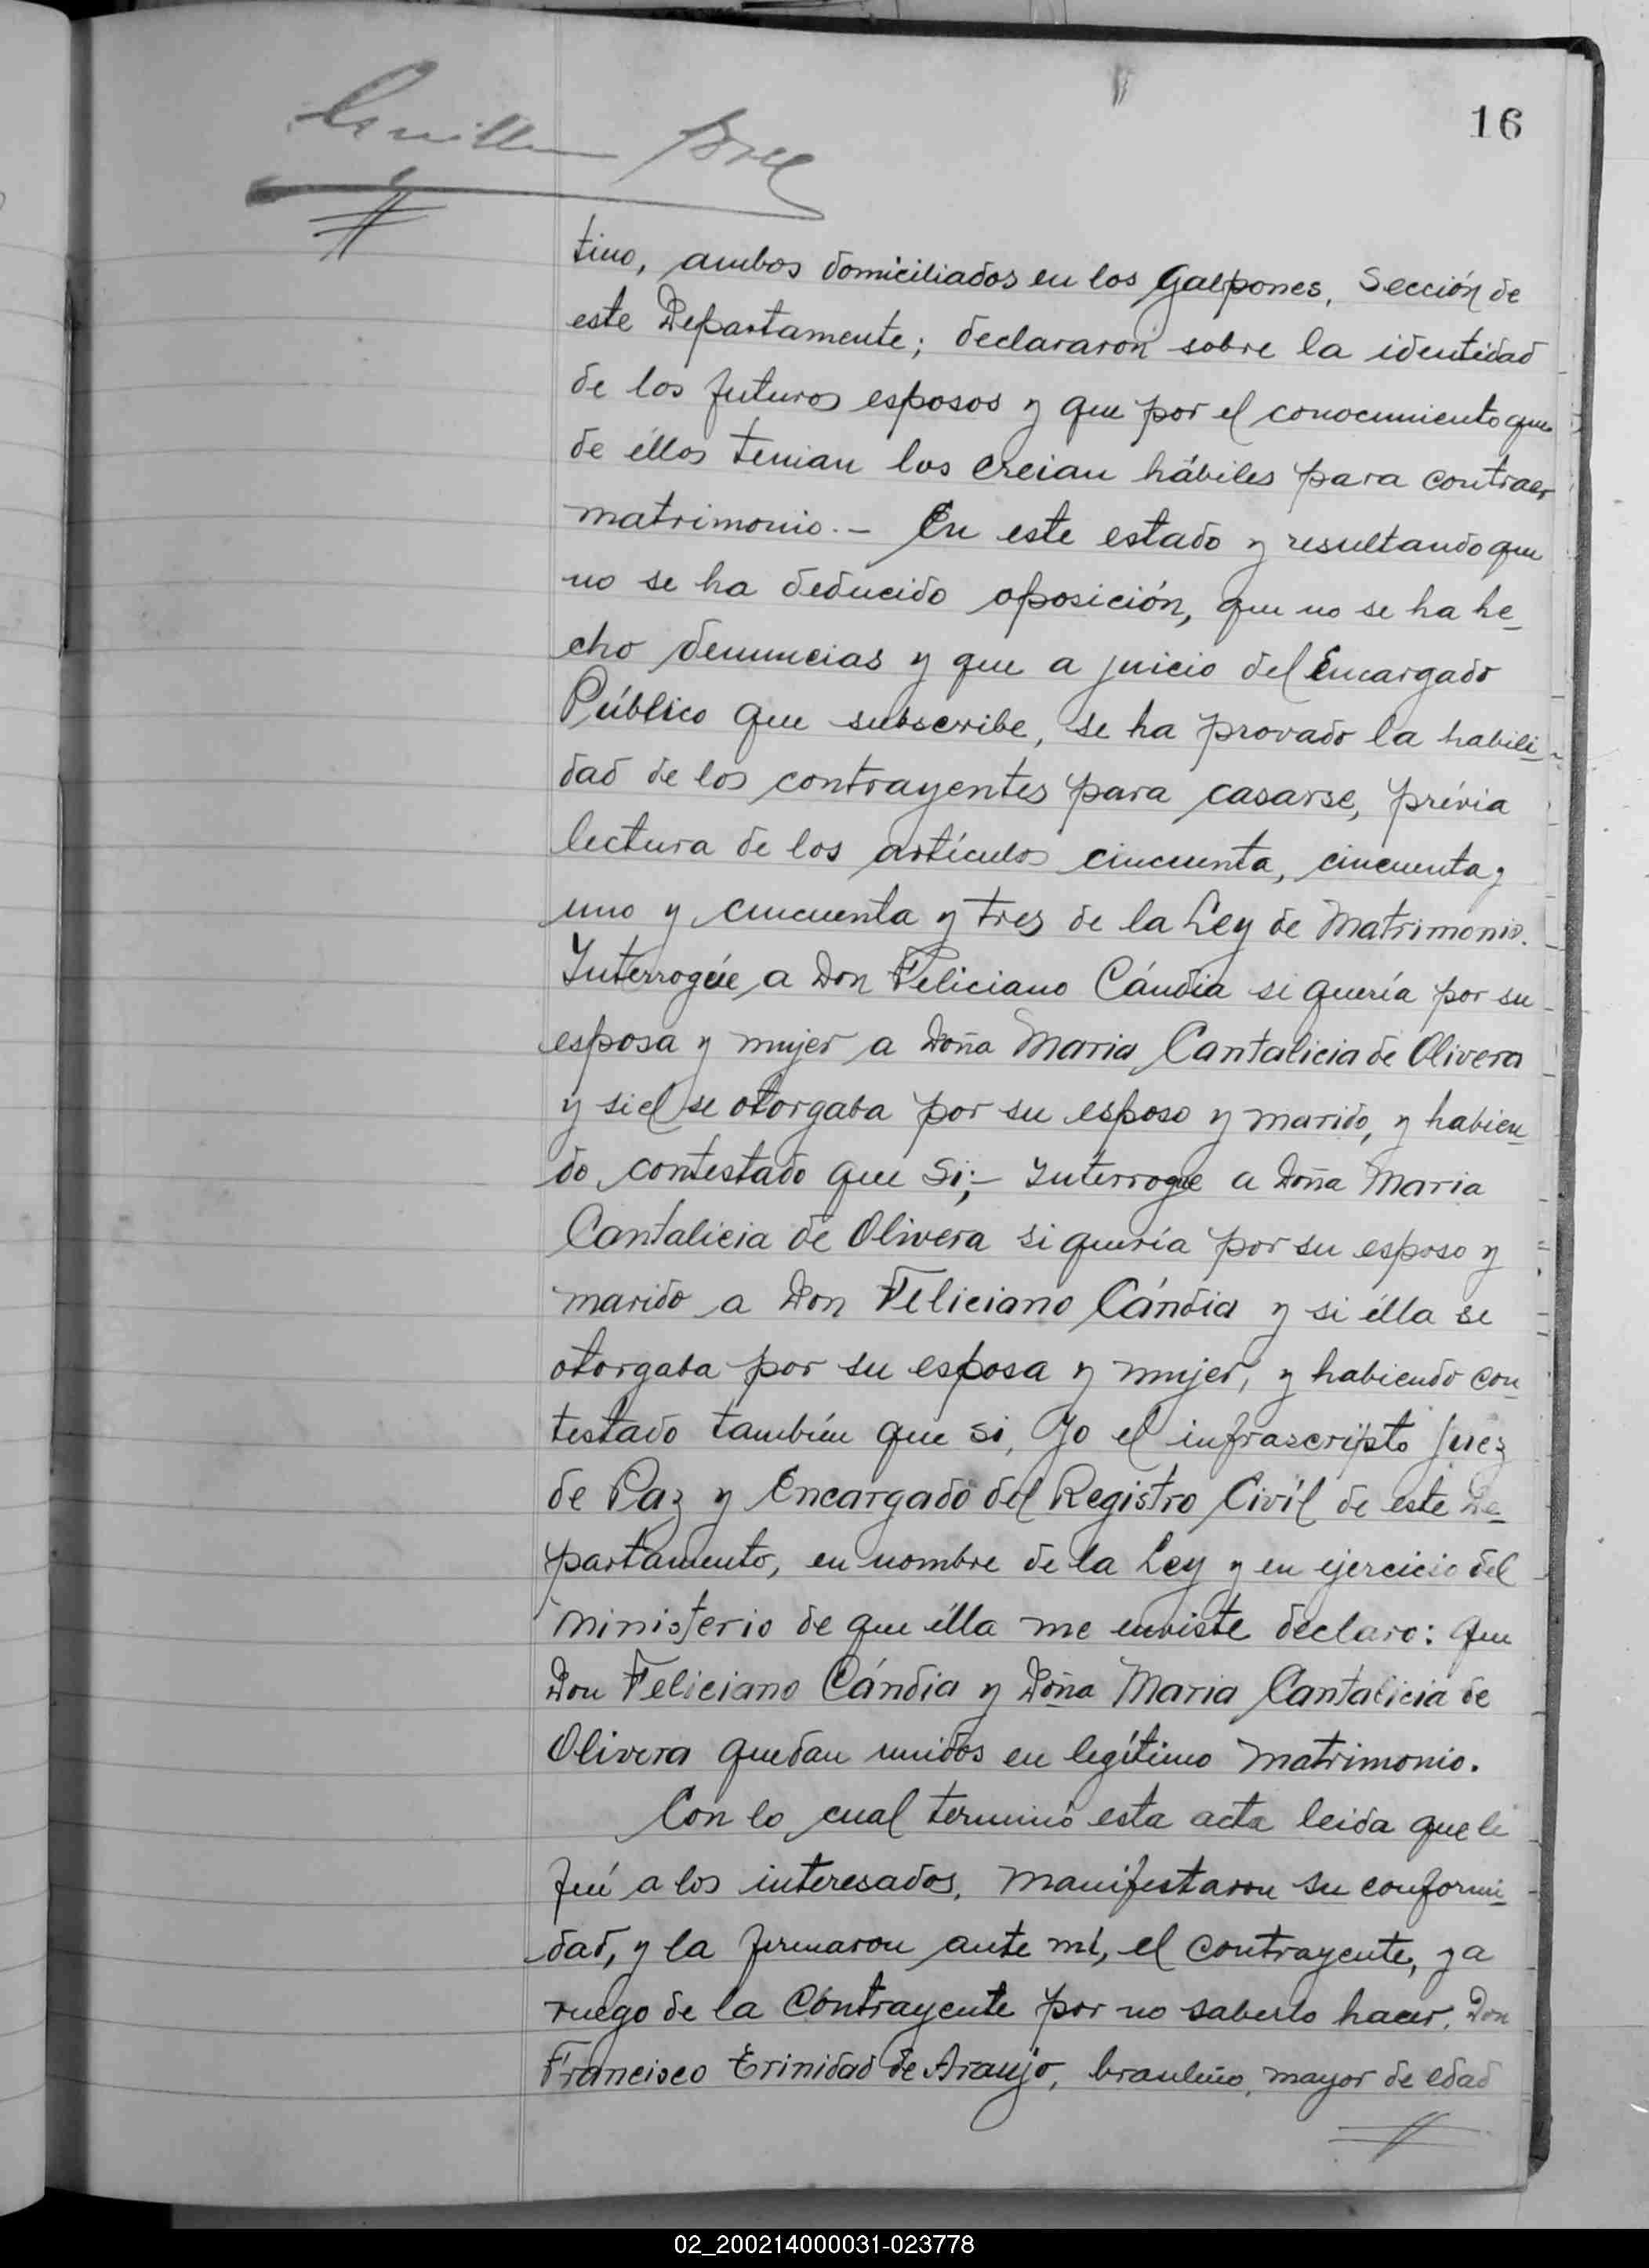 16
tino, ambos domiciliados en los Galpones, Sección de
este Departamente; declararon sobre la identidad
de los futuros esposos y que por el conocimiento que
de éllos tenian los creian hábiles para contraer
matrimonio.- En este estado y resultando que
no se ha deducido oposición, que no se ha he_
cho denuncias y que a juicio del Encargado
Público que subscribe, se ha provado la habili_
dad de los contrayentes para casarse, prévia
lectura de los artículos cincuenta, cincuenta y
uno y cincuenta y tres de la Ley de Matrimonio.
Interrogúe a Don Feliciano Cándia si quería por su
esposa y mujer a Doña Maria Cantalicia de Olivera
y si el se otorgaba por su esposo y marido, y habien_
do contestado que Si;- Interrogue a Doña Maria
Cantalicia de Olivera si quería por su esposo y
marido a Don Feliciano Cándia y si élla se
otorgaba por su esposa y mujer, y habiendo con_
testado también que si, Yo el infrascripto Juez
de Paz y Encargado del Registro Civíl de este De_
partamento, en nombre de la Ley y en ejercicio del
ministerio de que élla me enviste declaro: que
Don Feliciano Cándia y Doña Maria Cantalicia de
Olivera quedan unidos en legítimo Matrimonio.
Con lo cual terminó esta acta leida que le
fué a los interesados, manifestaron su conformi_
dad, y la firmaron ante mí, el contrayente, y a
ruego de la Contrayente por no saberlo hacer, Don
Francisco Trinidad de Araujo, brasileño, mayor de edad
02_200214000031-023778